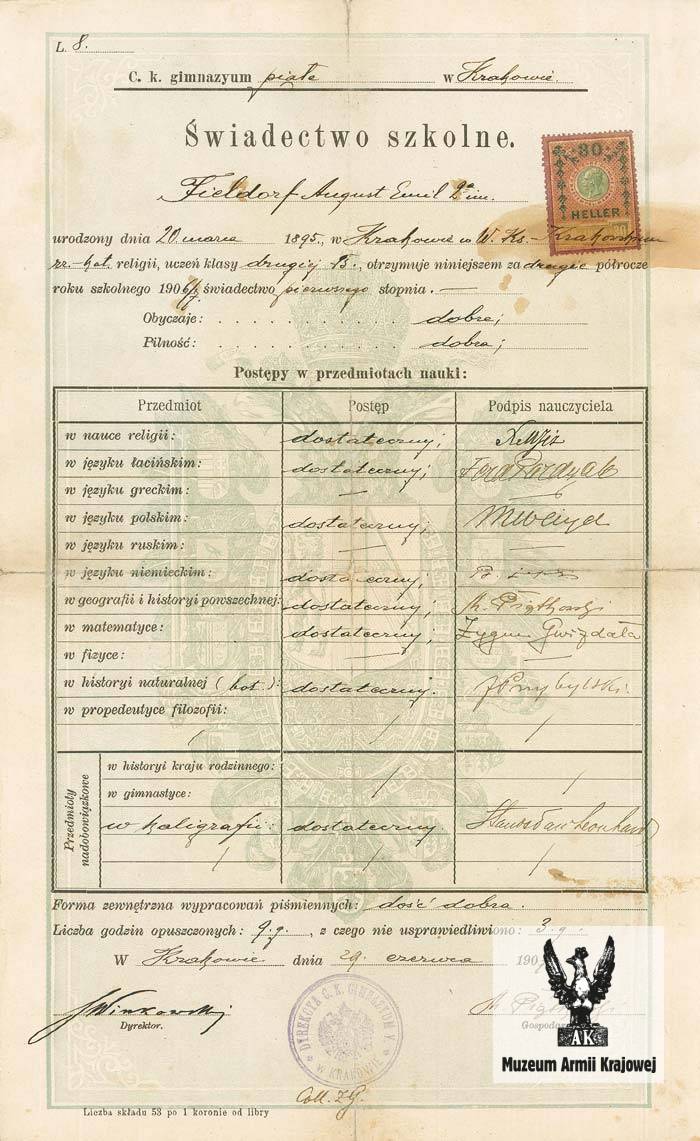 L. 8.
C. k. gimnazyum piąte w Krakowie.
Świadectwo szkolne.
Fieldorf August Emil 2ga im.
30
HELLER
urodzony dnia 20 marca 1895, w Krakowie w W. Ks. Krakowskiem
rz.-kat. religii, uczeń klasy drugiej B., otrzymuje niniejszem za drugie półrocze
roku szkolnego 1906/7 świadectwo pierwszego stopnia. —
Obyczaje: dobre;
Pilność: dobra;
Postępy w przedmiotach nauki:
Przedmiot Postęp Podpis nauczyciela
w nauce religii: dostateczny;
w języku łacińskim: dostateczny;
w języku greckim: — —
w języku polskim: dostateczny;
w języku ruskim: — —
w języku niemieckim: dostateczny;
w geografii i historyi powszechnej: dostateczny; Piątkowski
w matematyce: dostateczny; Zygm Gwizdała
w fizyce: — —
w historyi naturalnej (bot.): dostateczny. Przybylski.
w propedeutyce filozofii: / /
/ / /
Przedmioty nadobowiązkowe
w historyi kraju rodzinnego: / /
w gimnastyce: / /
w kaligrafii: dostateczny. Stanisław Leonhard
/ / /
Forma zewnętrzna wypracowań piśmiennych: dość dobra.
Liczba godzin opuszczonych: 9 g., z czego nie usprawiedliwiono: 3 g.
W Krakowie dnia 29 czerwca 190
Winkowski
Dyrektor.
Gospoda
DYREKCYA C. K. GIMNAZYUM V. W KRAKOWIE
AK
Muzeum Armii Krajowej
Coll. ZG.
Liczba składu 53 po 1 koronie od libry